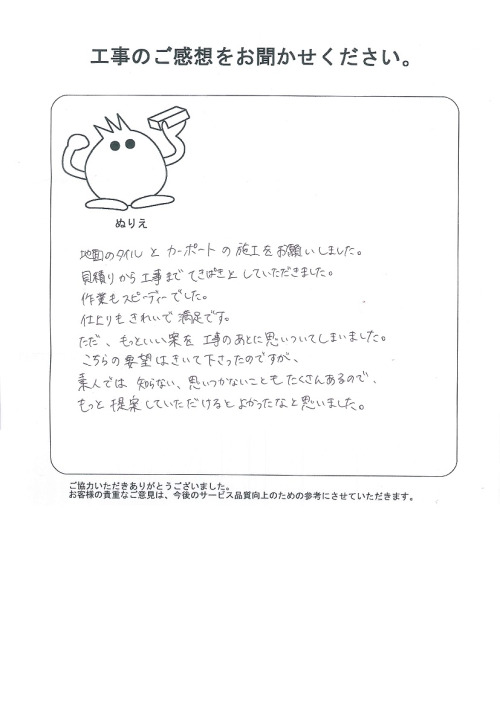 工事のご感想をお聞かせください。
ぬりえ
地面のタイルとカーポートの施工をお願いしました。
見積りから工事までてきぱきとしていただきました。
作業もスピーディーでした。
仕上りもきれいで満足です。
ただ、もっといい案を工事のあとに思いついてしまいました。
こちらの要望はきいて下さったのですが、
素人では知らない、思いつかないこともたくさんあるので、
もっと提案していただけるとよかったなと思いました。
ご協力いただきありがとうございました。
お客様の貴重なご意見は、今後のサービス品質向上のための参考にさせていただきます。